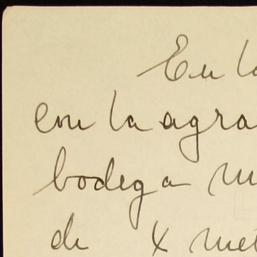 En la
con la agra
bodega m
de X met